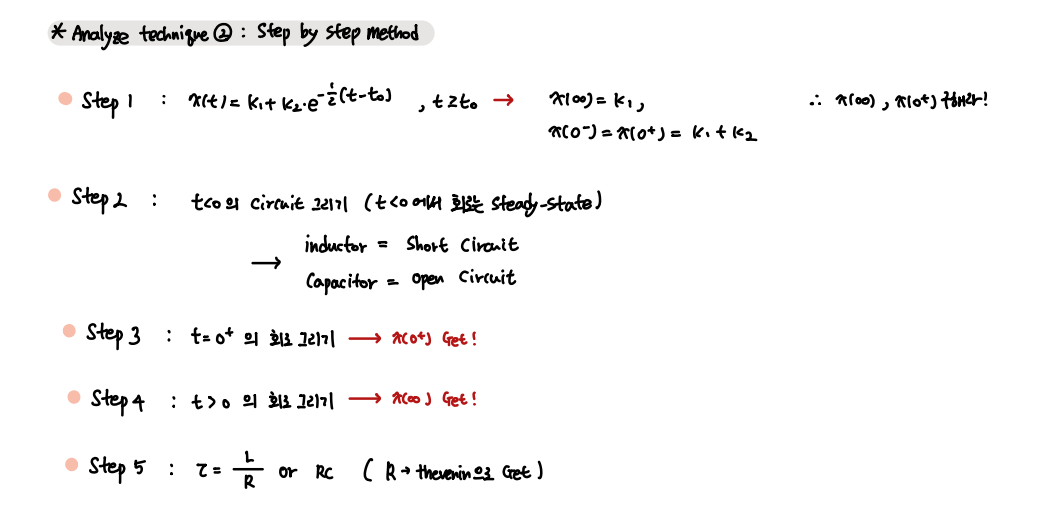 * Analyze technique ② : Step by step method
Step 1 : x(t) = K₁ + K₂·e^{-\frac{1}{2}(t-t₀)} , t ≥ t₀ → x(∞) = K₁, ∴ x(∞), x(0⁺) 구해라!
x(0⁻) = x(0⁺) = K₁ + K₂
Step 2 : t<0 의 circuit 그리기 (t<0 에서 회로는 steady-state)
→ inductor = Short Circuit
Capacitor = open Circuit
Step 3 : t=0⁺ 의 회로 그리기 → x(0⁺) Get!
Step 4 : t>0 의 회로 그리기 → x(∞) Get!
Step 5 : τ = L/R or RC (R→thevenin으로 Get)